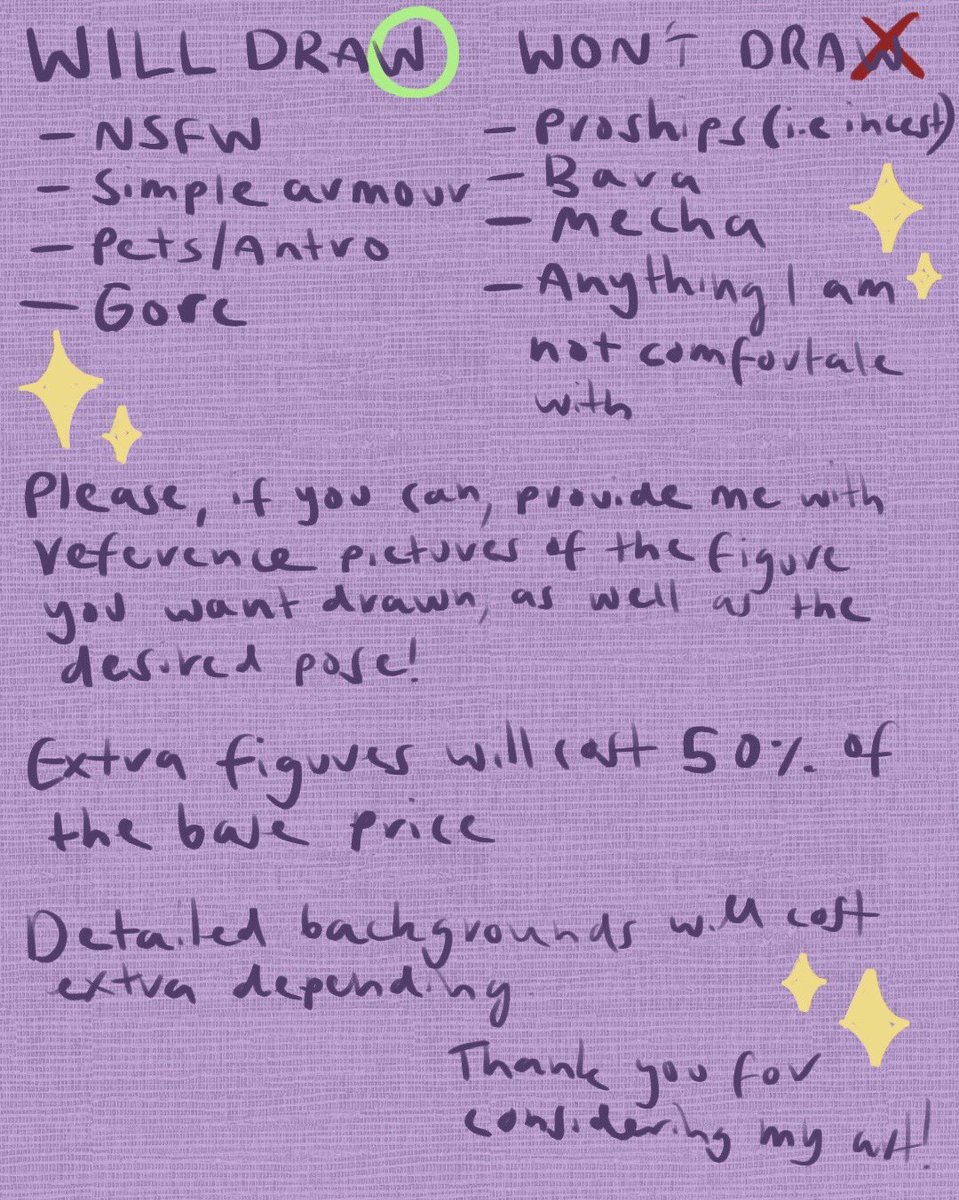 WILL DRAW
- NSFW
- Simple armour
- Pets/Antro
- Gore
WON'T DRAW
- Proships (i.e incest)
- Bara
- Mecha
- Anything I am
not comfortale
with
Please, if you can, provide me with
reference pictures of the figure
you want drawn, as well as the
desired pose!
Extra figures will cost 50% of
the base price
Detailed backgrounds will cost
extra depending
Thank you for
considering my art!